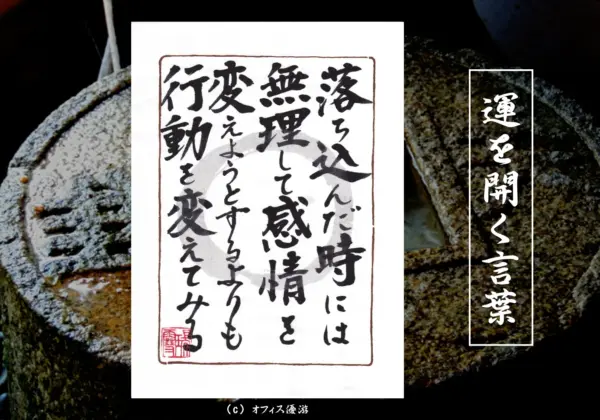 運を開く言葉
落ち込んだ時には
無理して感情を
変えようとするよりも
行動を変えてみる
(C) オフィス優游